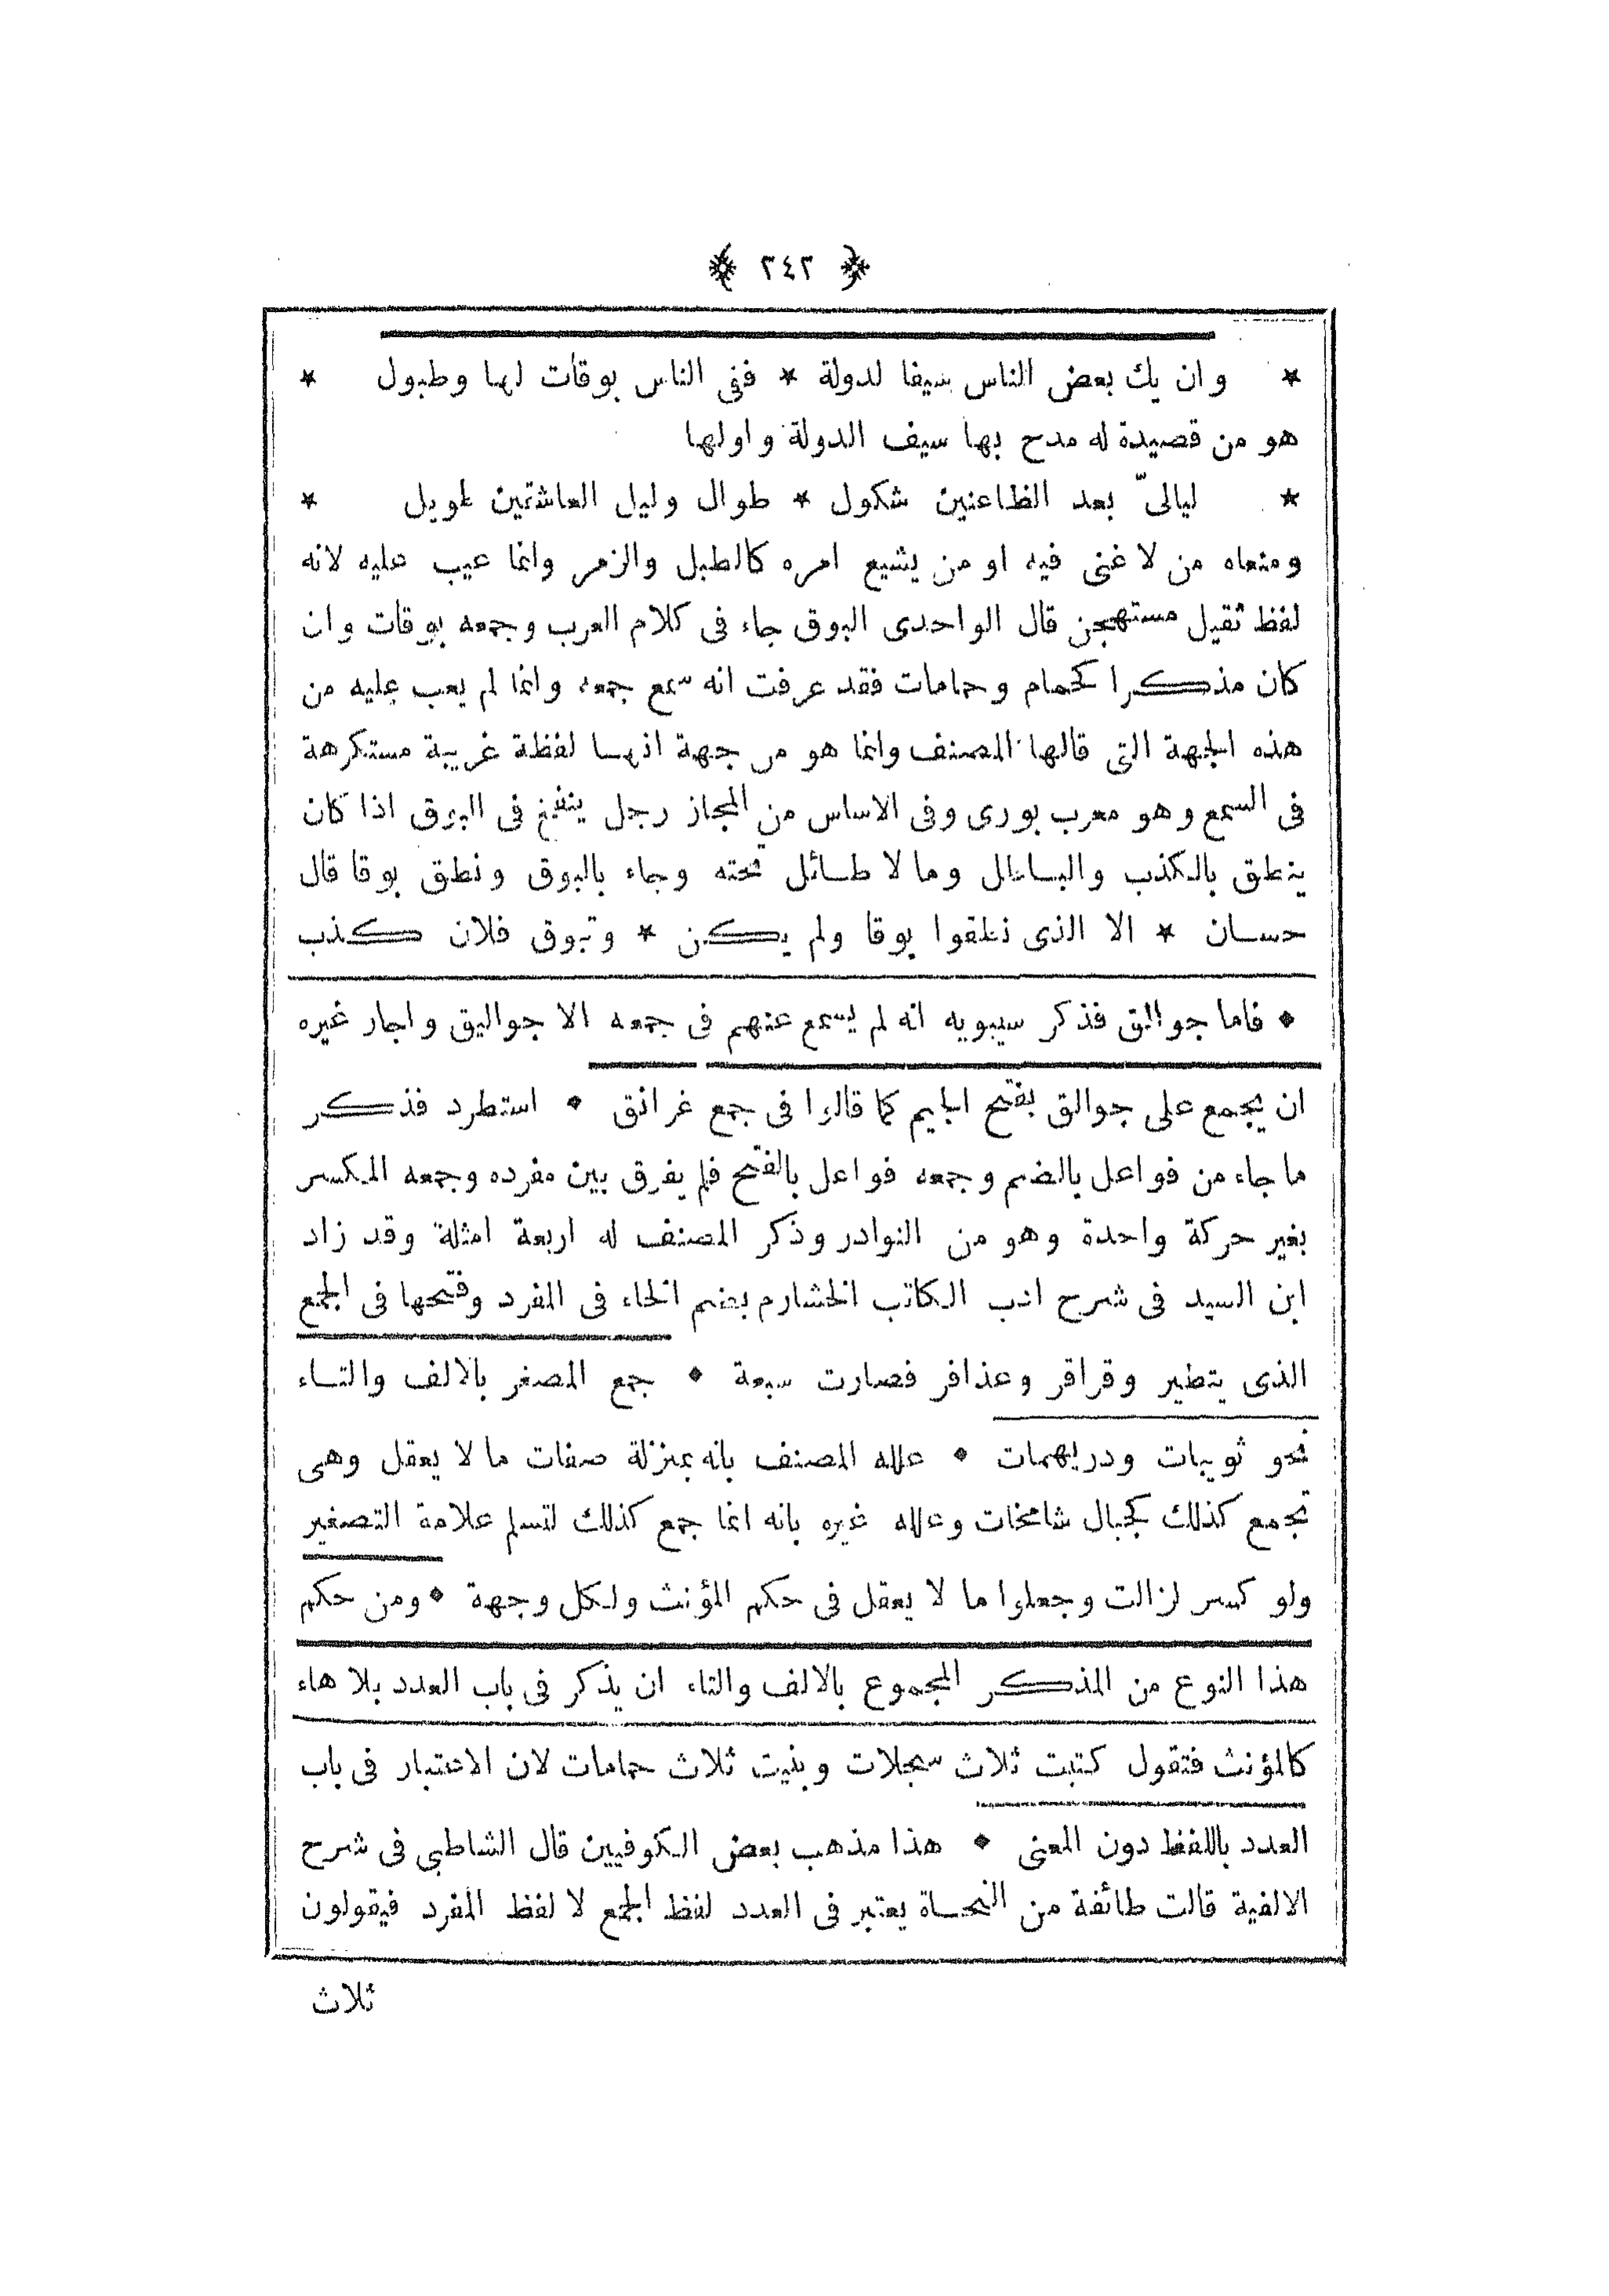 ﴿ ٢٤٢ ﴾
* وان يك بعض الناس سيفا لدولة * ففى الناس بوقات لها وطبول *
هو من قصيدة له مدح بها سيف الدولة واولها
* ليالىّ بعد الظاعنين شكول * طوال وليل العاشقين طويل *
ومعناه من لا غنى فيه او من يشيع امره كالطبل والزمر وانما عيب عليه لانه
لفظ ثقيل مستهجن قال الواحدى البوق جاء فى كلام العرب وجمعه بوقات وان
كان مذكرا كحمام وحمامات فقد عرفت انه سمع جمعه وانما لم يعب عليه من
هذه الجهة التى قالها المصنف وانما هو من جهة انها لفظة غريبة مستكرهة
فى السمع وهو معرب بورى وفى الاساس من المجاز رجل ينفخ فى البوق اذا كان
ينطق بالكذب والباطل وما لا طائل تحته وجاء بالبوق ونطق بوقا قال
حسان * الا الذى نطقوا بوقا ولم يكن * وتبوق فلان كذب
• فاما جوالق فذكر سيبويه انه لم يسمع عنهم فى جمعه الا جواليق واجاز غيره
ان يجمع على جوالق بفتح الجيم كما قالوا فى جمع غرانق • استطرد فذكر
ما جاء من فواعل بالضم وجمعه فواعل بالفتح فلم يفرق بين مفرده وجمعه المكسر
بغير حركة واحدة وهو من النوادر وذكر المصنف له اربعة امثلة وقد زاد
ابن السيد فى شرح ادب الكاتب الخشارم بضم الخاء فى المفرد وفتحها فى الجمع
الذى يتطير وقراقر وعذافر فصارت سبعة • جمع المصغر بالالف والتاء
نحو ثويبات ودريهمات • علله المصنف بانه بمنزلة صفات ما لا يعقل وهى
تجمع كذلك كجبال شامخات وعلله غيره بانه انما جمع كذلك لتسلم علامة التصغير
ولو كسر لزالت وجعلوا ما لا يعقل فى حكم المؤنث ولكل وجهة • ومن حكم
هذا النوع من المذكر المجموع بالالف والتاء ان يذكر فى باب العدد بلا هاء
كالمؤنث فتقول كتبت ثلاث سجلات وبنيت ثلاث حمامات لان الاعتبار فى باب
العدد باللفظ دون المعنى • هذا مذهب بعض الكوفيين قال الشاطبى فى شرح
الالفية قالت طائفة من النحاة يعتبر فى العدد لفظ الجمع لا لفظ المفرد فيقولون
ثلاث